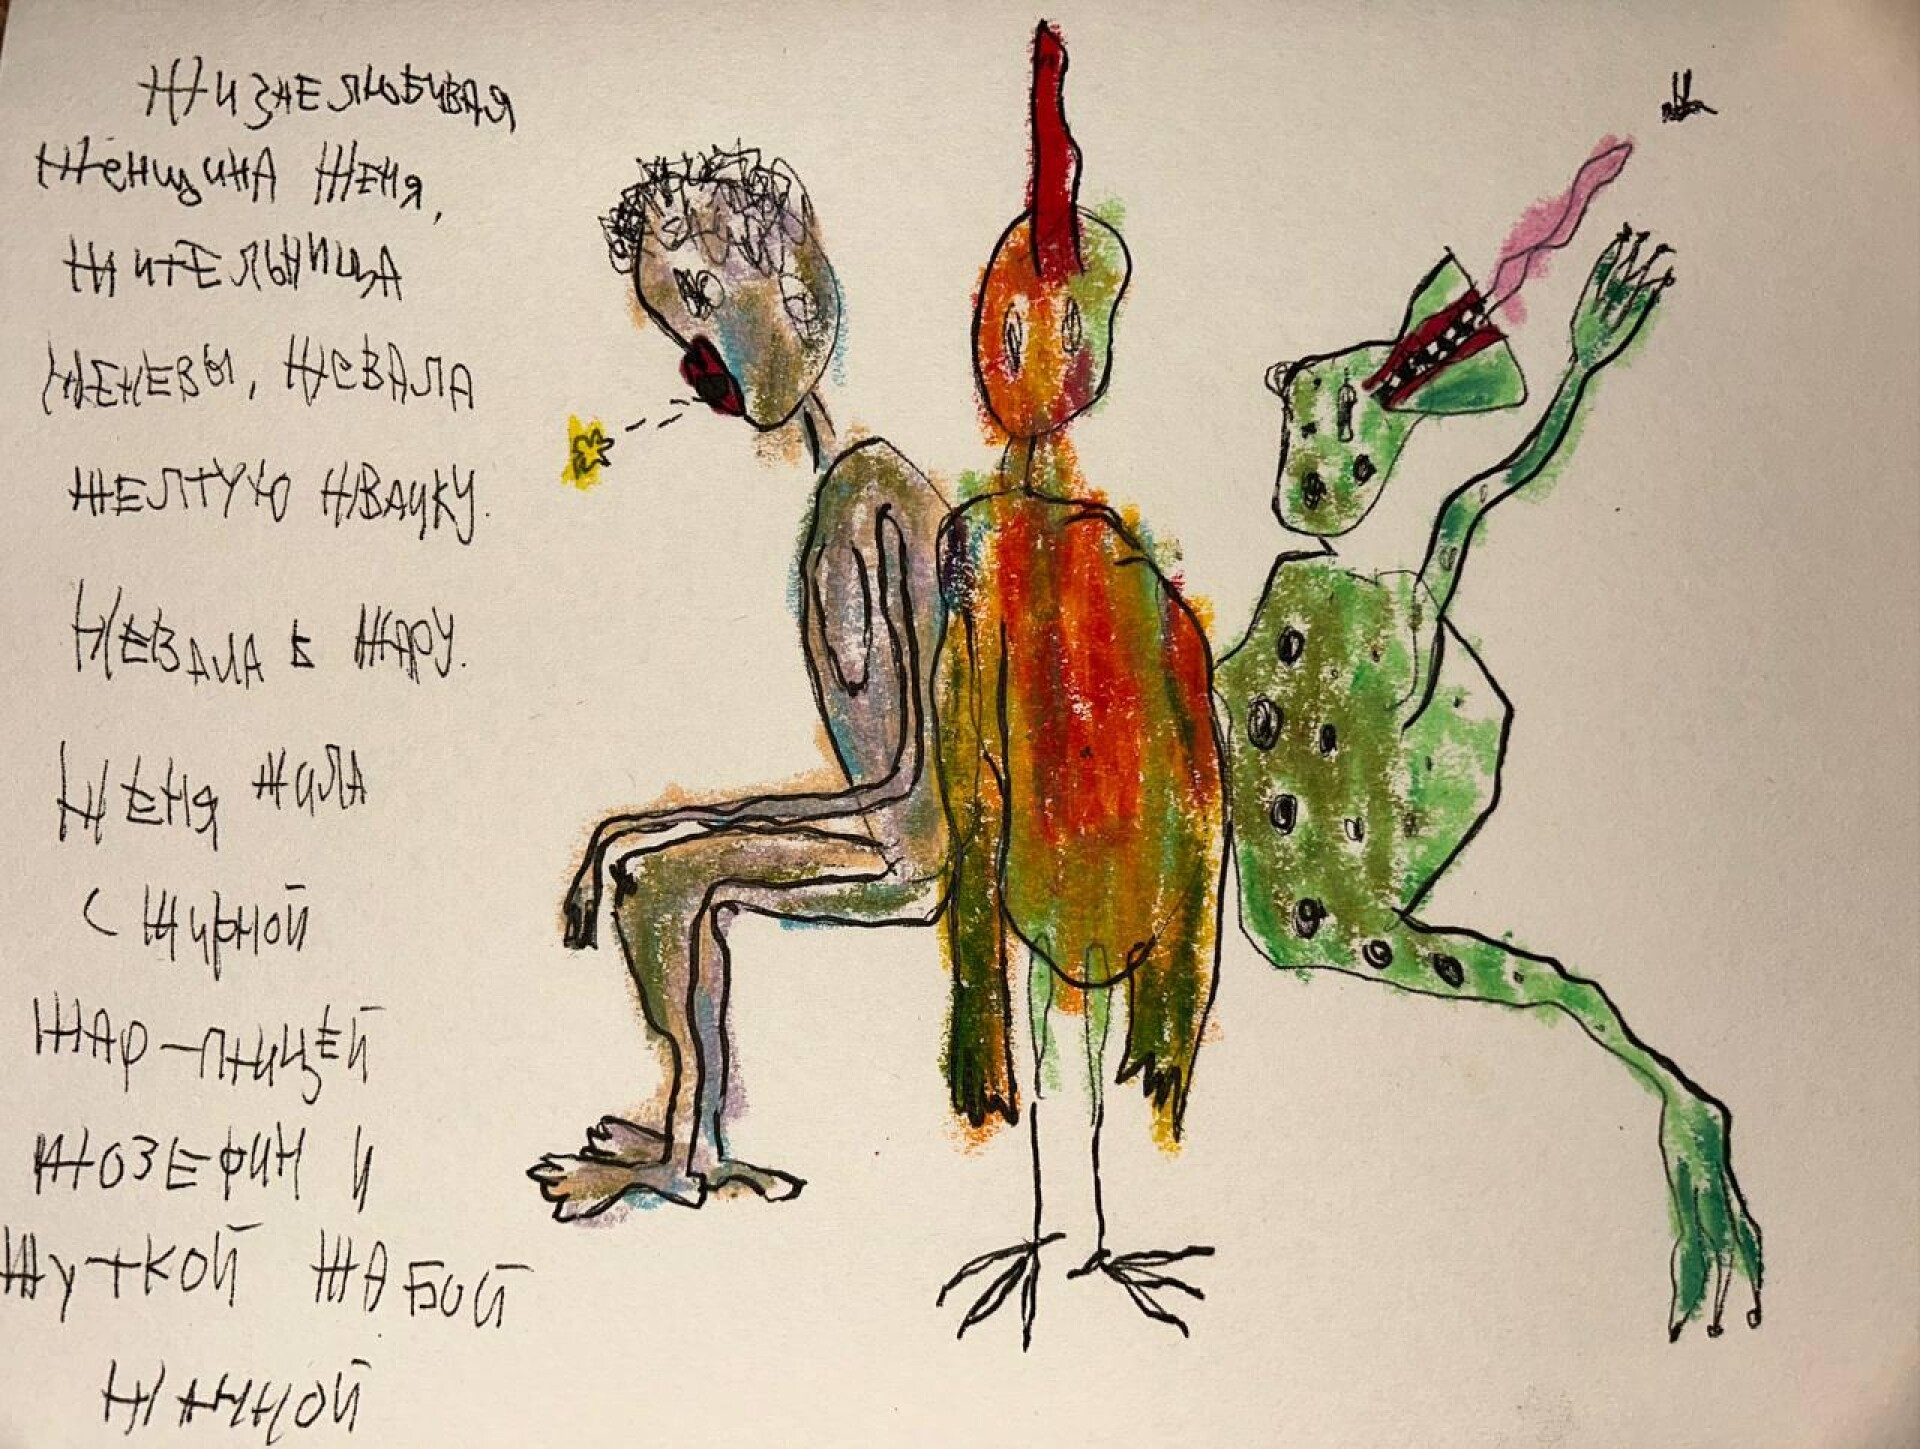 Жизнелюбивая
женщина Женя,
жительница
Женевы, жевала
желтую жвачку.
Жевала в жару.
Женя жила
с жирной
жар-птицей
Жозефин и
жуткой жабой
Жанной